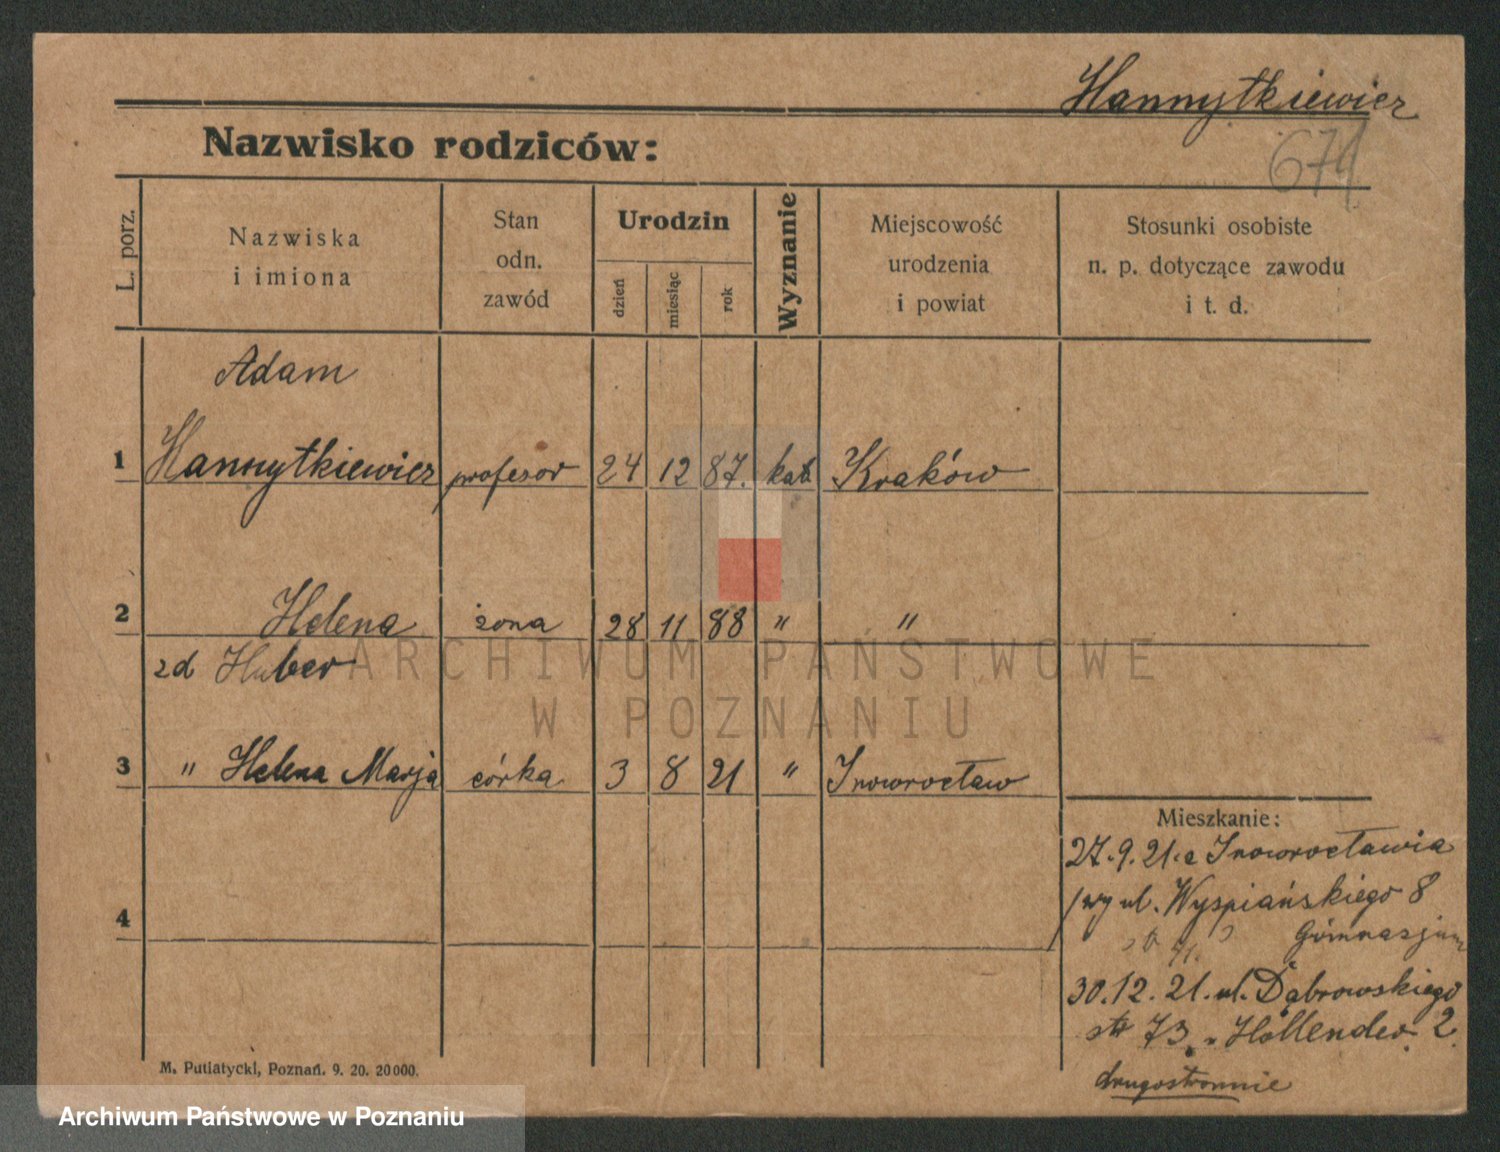 Hannytkiewicz
Nazwisko rodziców:
674
L. porz.
Nazwiska
i imiona
Stan
odn.
zawód
Urodzin
dzień
miesiąc
rok
Wyznanie
Miejscowość
urodzenia
i powiat
Stosunki osobiste
n. p. dotyczące zawodu
i t. d.
Adam
1 Hannytkiewicz profesor 24 12 87. kat Kraków
2 Helena żona 28 11 88 " "
zd Huber
3 " Helena Marja córka 3 8 21 " Inowrocław
Mieszkanie:
27.9.21. z Inowrocławia
ul. Wyspiańskiego 8
Gimnasjum
4
30.12.21. ul. Dąbrowskiego
73 Hollender 2
drugostronnie
M. Putiatycki, Poznań. 9. 20. 20000.
ARCHIWUM PAŃSTWOWE
W POZNANIU
Archiwum Państwowe w Poznaniu